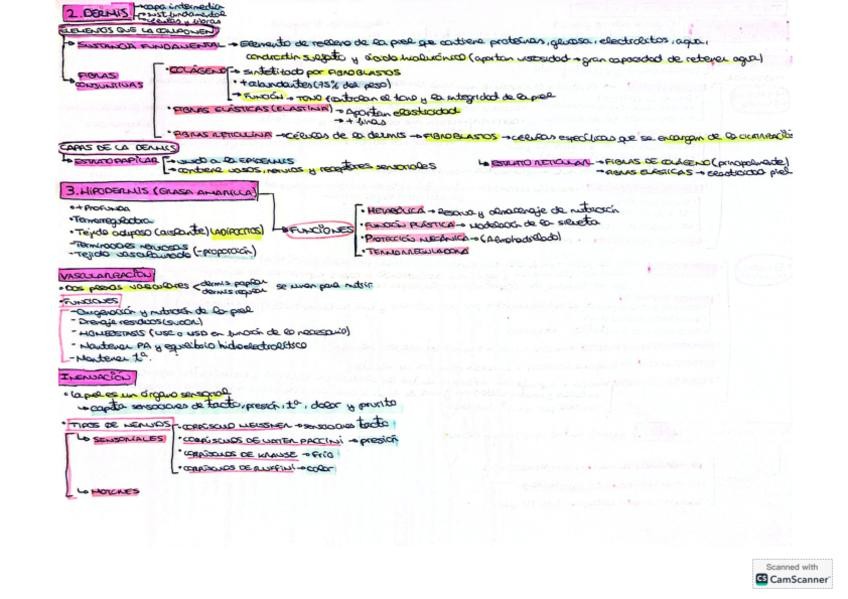 2. DERMIS → capa intermedia
→ sust fundamental
→ células y fibras
ELEMENTOS QUE LA COMPONEN
→ SUSTANCIA FUNDAMENTAL → Elemento de relleno de la piel que contiene proteínas, glucosa, electrolitos, agua,
condroitin sulfato y ácido hialurónico (aportan viscosidad → gran capacidad de retener agua)
→ FIBRAS CONJUNTIVAS
• COLÁGENO → sintetizado por FIBROBLASTOS
→ + abundantes (75% del peso)
→ FUNCIÓN → TONO (controlan el tono y la integridad de la piel
• FIBRAS ELÁSTICAS (ELASTINA) → Aportan elasticidad
→ + finas
• FIBRAS RETICULINA → Células de la dermis → FIBROBLASTOS → células específicas que se encargan de la cicatrización
CAPAS DE LA DERMIS
→ ESTRATO PAPILAR → unido a la EPIDERMIS
→ contiene vasos, nervios y receptores sensoriales
→ ESTRATO RETICULAR → FIBRAS DE COLÁGENO (principalmente)
→ FIBRAS ELÁSTICAS → elasticidad piel
3. HIPODERMIS (GRASA AMARILLA)
• + Profunda
• Termorreguladora
• Tejido adiposo (aislante) (ADIPOCITOS)
- Terminaciones nerviosas
- Tejido vascularizado (- proporción)
→ FUNCIONES
• METABÓLICA → Reserva y almacenaje de nutrición
• FUNCIÓN PLÁSTICA → Modelación de la silueta
• PROTECCIÓN MECÁNICA → (Almohadillado)
• TERMORREGULADORA
VASCULARIZACIÓN
• Dos plexos vasculares < dermis papilar
dermis reticular
se unen para nutrir
• FUNCIONES
- Oxigenación y nutrición de la piel
- Drenaje residuos (sudor)
- HOMEOSTASIS (VSC o VSD en función de lo necesario)
- Mantener PA y equilibrio hidroelectrolítico
- Mantener tª.
INERVACIÓN
• La piel es un órgano sensorial
→ capta sensaciones de tacto, presión, tª, dolor y prurito
• TIPOS DE NERVIOS
→ SENSORIALES
• CORPÚSCULO MEISSNER → sensaciones tacto
• CORPÚSCULOS DE VATER PACCINI → presión
• CORPÚSCULOS DE KRAUSE → frío
• CORPÚSCULOS DE RUFFINI → calor
→ MOTORES
Scanned with
CS CamScanner